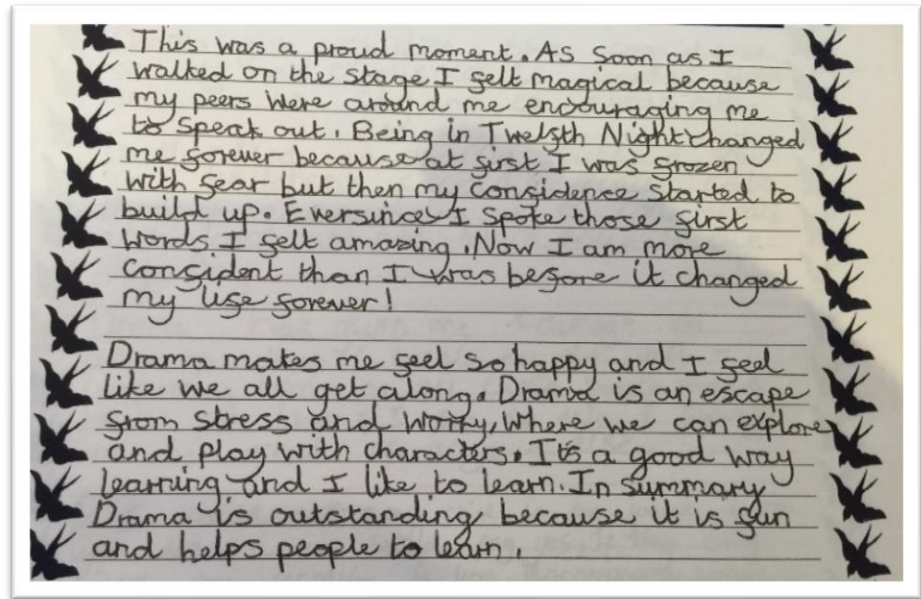 This was a proud moment. As soon as I
walked on the stage I felt magical because
my peers were around me encouraging me
to speak out. Being in Twelfth Night changed
me forever because at first I was frozen
with fear but then my confidence started to
build up. Eversince I spoke those first
words I felt amazing. Now I am more
confident than I was before it changed
my life forever!
Drama makes me feel so happy and I feel
like we all get along. Drama is an escape
from stress and worry, where we can explore
and play with characters. It's a good way
learning and I like to learn. In summary
Drama is outstanding because it is fun
and helps people to learn.